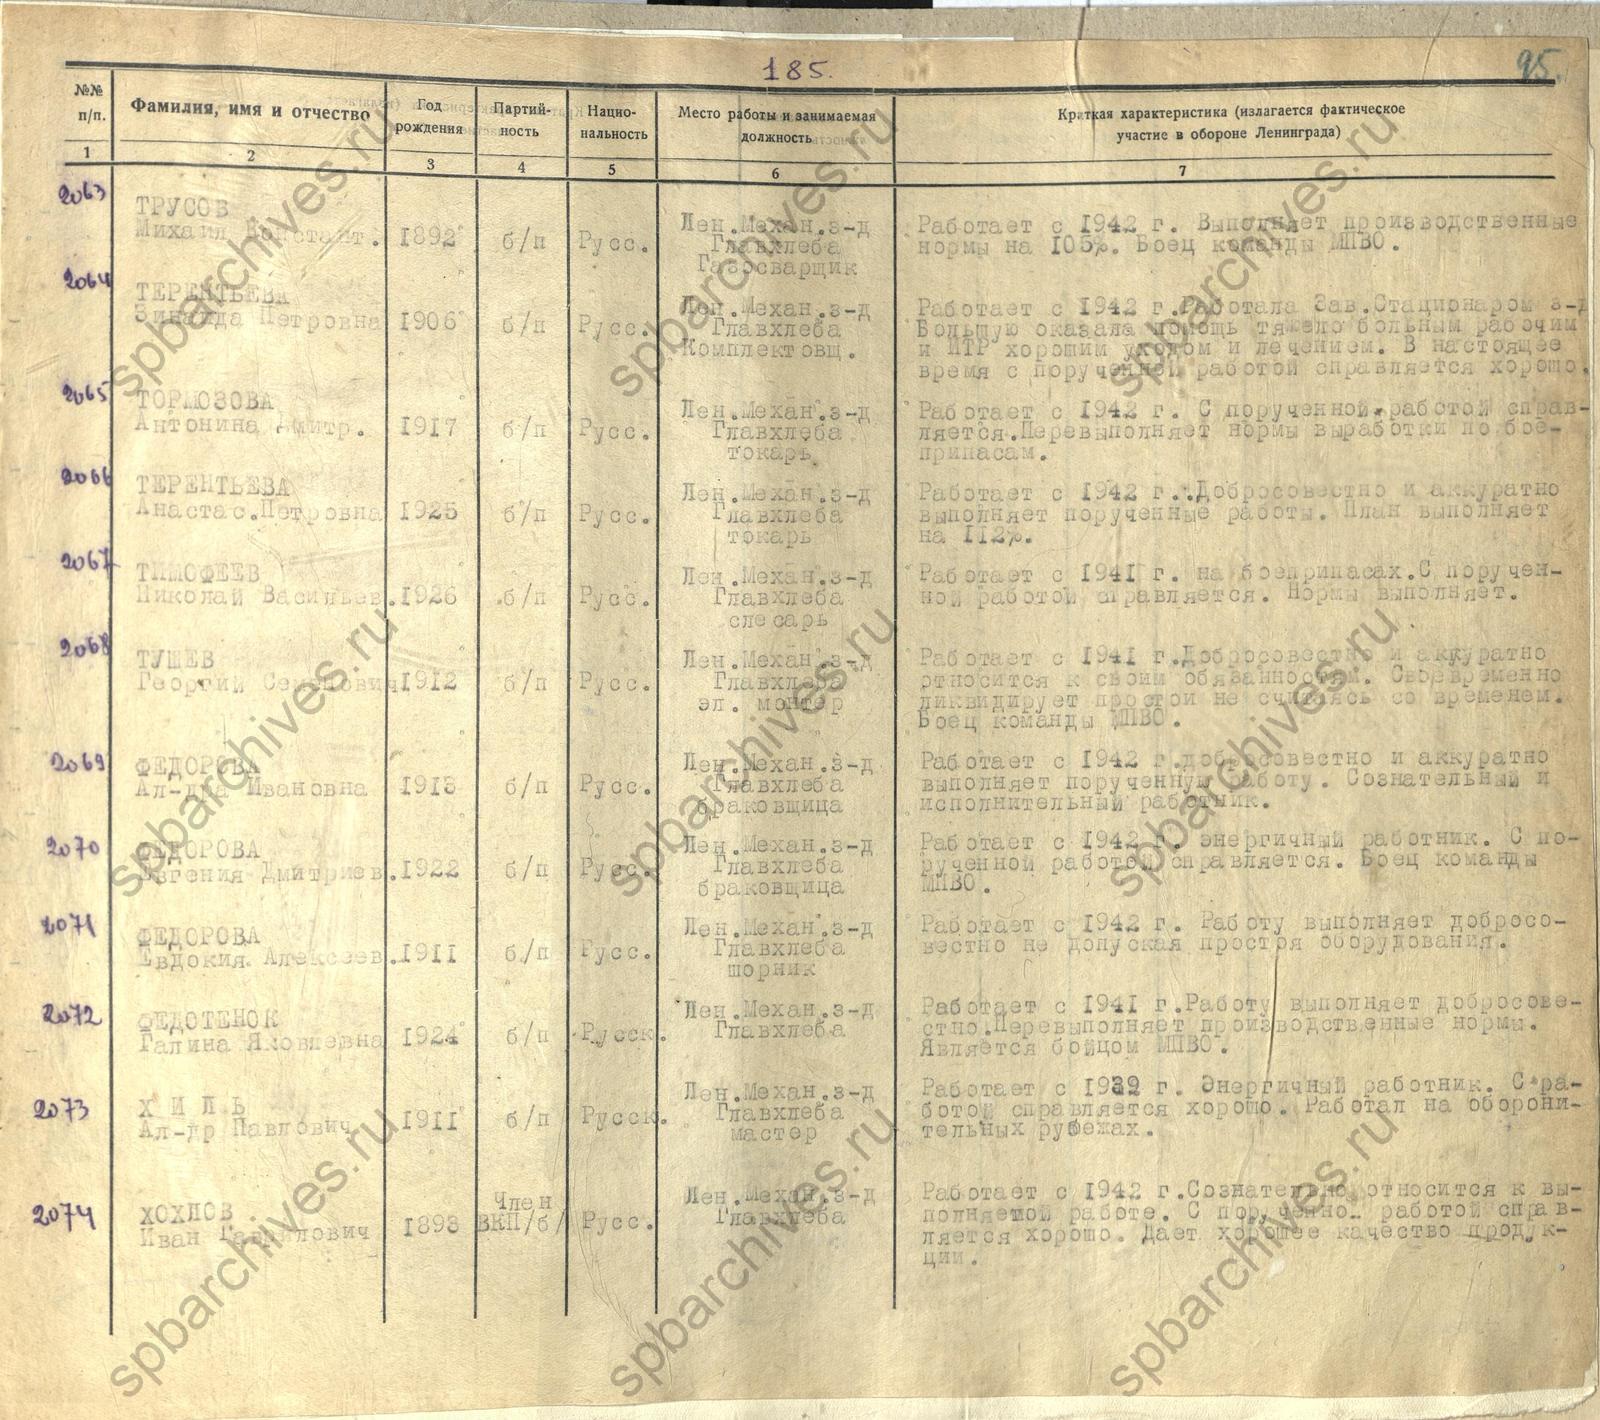 185.
95.
№№ п/п.
Фамилия, имя и отчество
Год рождения
Партий-
ность
Нацио-
нальность
Место работы и занимаемая
должность
Краткая характеристика (излагается фактическое
участие в обороне Ленинграда)
1 2 3 4 5 6 7
2063
ТРУСОВ
Михаил Констант. 1892 б/п Русс.
Лен.Механ.з-д
Главхлеба
Газосварщик
Работает с 1942 г. Выполняет производственные
нормы на 105%. Боец команды МПВО.
2064
ТЕРЕНТЬЕВА
Зинаида Петровна 1906 б/п Русс.
Лен.Механ.з-д
Главхлеба
Комплектовщ.
Работает с 1942 г.Работала Зав.Стационаром з-д
Большую оказала помощь тяжело больным рабочим
и ИТР хорошим уходом и лечением. В настоящее
время с порученной работой справляется хорошо.
2065
ТОРМОЗОВА
Антонина Дмитр. 1917 б/п Русс.
Лен.Механ.з-д
Главхлеба
токарь
Работает с 1942 г. С порученной работой справ-
ляется.Перевыполняет нормы выработки по бое-
припасам.
2066
ТЕРЕНТЬЕВА
Анастас.Петровна 1925 б/п Русс.
Лен.Механ.з-д
Главхлеба
токарь
Работает с 1942 г..Добросовестно и аккуратно
выполняет порученные работы. План выполняет
на 112%.
2067
ТИМОФЕЕВ
Николай Васильев. 1926 б/п Русс.
Лен.Механ.з-д
Главхлеба
слесарь
Работает с 1941 г. на боеприпасах.С поручен-
ной работой справляется. Нормы выполняет.
2068
ТУШЕВ
Георгий Семенович 1912 б/п Русс.
Лен.Механ.з-д
Главхлеба
эл. монтер
Работает с 1941 г.Добросовестно и аккуратно
относится к своим обязанностям. Своевременно
ликвидирует простои не считаясь со временем.
Боец команды МПВО.
2069
ФЕДОРОВА
Ал-дра Ивановна 1913 б/п Русс.
Лен.Механ.з-д
Главхлеба
браковщица
Работает с 1942 г.добросовестно и аккуратно
выполняет порученную работу. Сознательный и
исполнительный работник.
2070
ФЕДОРОВА
Евгения Дмитриев. 1922 б/п Русс.
Лен.Механ.з-д
Главхлеба
браковщица
Работает с 1942 г. энергичный работник. С по-
рученной работой справляется. Боец команды
МПВО.
2071
ФЕДОРОВА
Евдокия Алексеев. 1911 б/п Русс.
Лен.Механ.з-д
Главхлеба
шорник
Работает с 1942 г. Работу выполняет добросо-
вестно не допуская простоя оборудования.
2072
ФЕДОТЕНОК
Галина Яковлевна 1924 б/п Русск.
Лен.Механ.з-д
Главхлеба
Работает с 1941 г.Работу выполняет добросове-
стно.Перевыполняет производственные нормы.
Является бойцом МПВО.
2073
Х И Л Ь
Ал-др Павлович 1911 б/п Русск.
Лен.Механ.з-д
Главхлеба
мастер
Работает с 1939 г. Энергичный работник. С ра-
ботой справляется хорошо. Работал на оборони-
тельных рубежах.
2074
ХОХЛОВ
Иван Гаврилович 1893 Член
ВКП/б/ Русс.
Лен.Механ.з-д
Главхлеба
Работает с 1942 г.Сознательно относится к вы-
полняемой работе. С порученной работой справ-
ляется хорошо. Дает хорошее качество продук-
ции.
spbarchives.ru
spbarchives.ru
spbarchives.ru
spbarchives.ru
spbarchives.ru
spbarchives.ru
spbarchives.ru
spbarchives.ru
spbarchives.ru